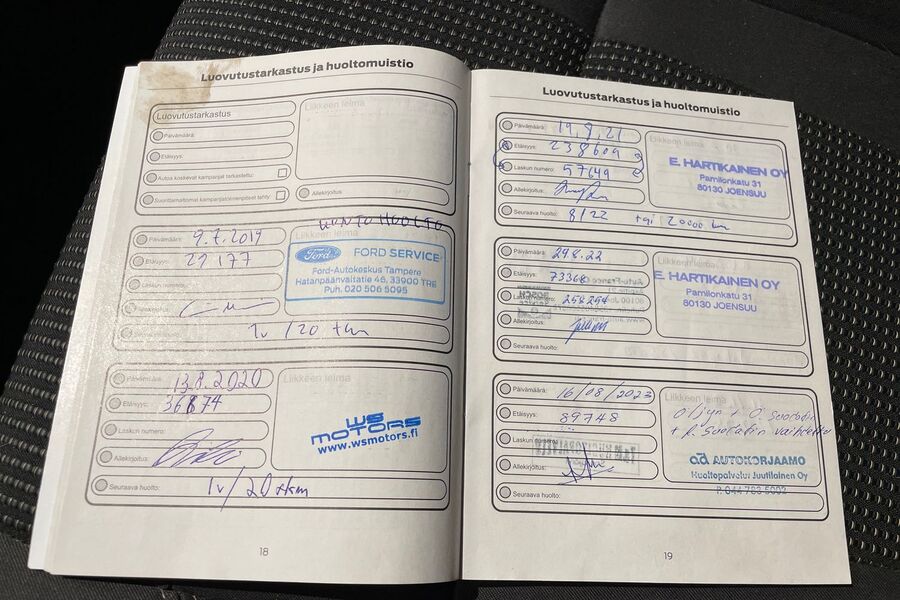 Luovutustarkastus ja huoltomuistio
Luovutustarkastus
Päivämäärä:
Etäisyys:
Autoa koskevat kampanjat tarkastettu:
Suorittamattomat kampanjatoimenpiteet tehty:
Liikkeen leima
Allekirjoitus
HUOLTO
Päivämäärä: 9.7.2019
Etäisyys: 21177
Laskun numero:
Allekirjoitus:
1v /20 tkm
Liikkeen leima
Ford FORD SERVICE
Ford-Autokeskus Tampere
Hatanpäänvaltatie 46, 33900 TRE
Puh. 020 506 5095
Päivämäärä: 13.8.2020
Etäisyys: 36874
Laskun numero:
Allekirjoitus:
Seuraava huolto: 1v/20tkm
Liikkeen leima
WS MOTORS
www.wsmotors.fi
18
Luovutustarkastus ja huoltomuistio
Päivämäärä: 19.8.21
Etäisyys: 238609
Laskun numero: 57649
Allekirjoitus:
Seuraava huolto: 8/22 tai 20000 km
Liikkeen leima
E. HARTIKAINEN OY
Pamilonkatu 31
80130 JOENSUU
Päivämäärä: 29.8.22
Etäisyys: 73368
Laskun numero: 258294
Allekirjoitus:
Seuraava huolto:
Liikkeen leima
E. HARTIKAINEN OY
Pamilonkatu 31
80130 JOENSUU
Päivämäärä: 16/08/2023
Etäisyys: 89748
Laskun numero:
Allekirjoitus:
Seuraava huolto:
Liikkeen leima
öljyn + ö. suodatin
+ r. suodatin vaihdettu
OMAAJRCTOKUTUA
Huoltopalvelu Juutilainen Oy
19